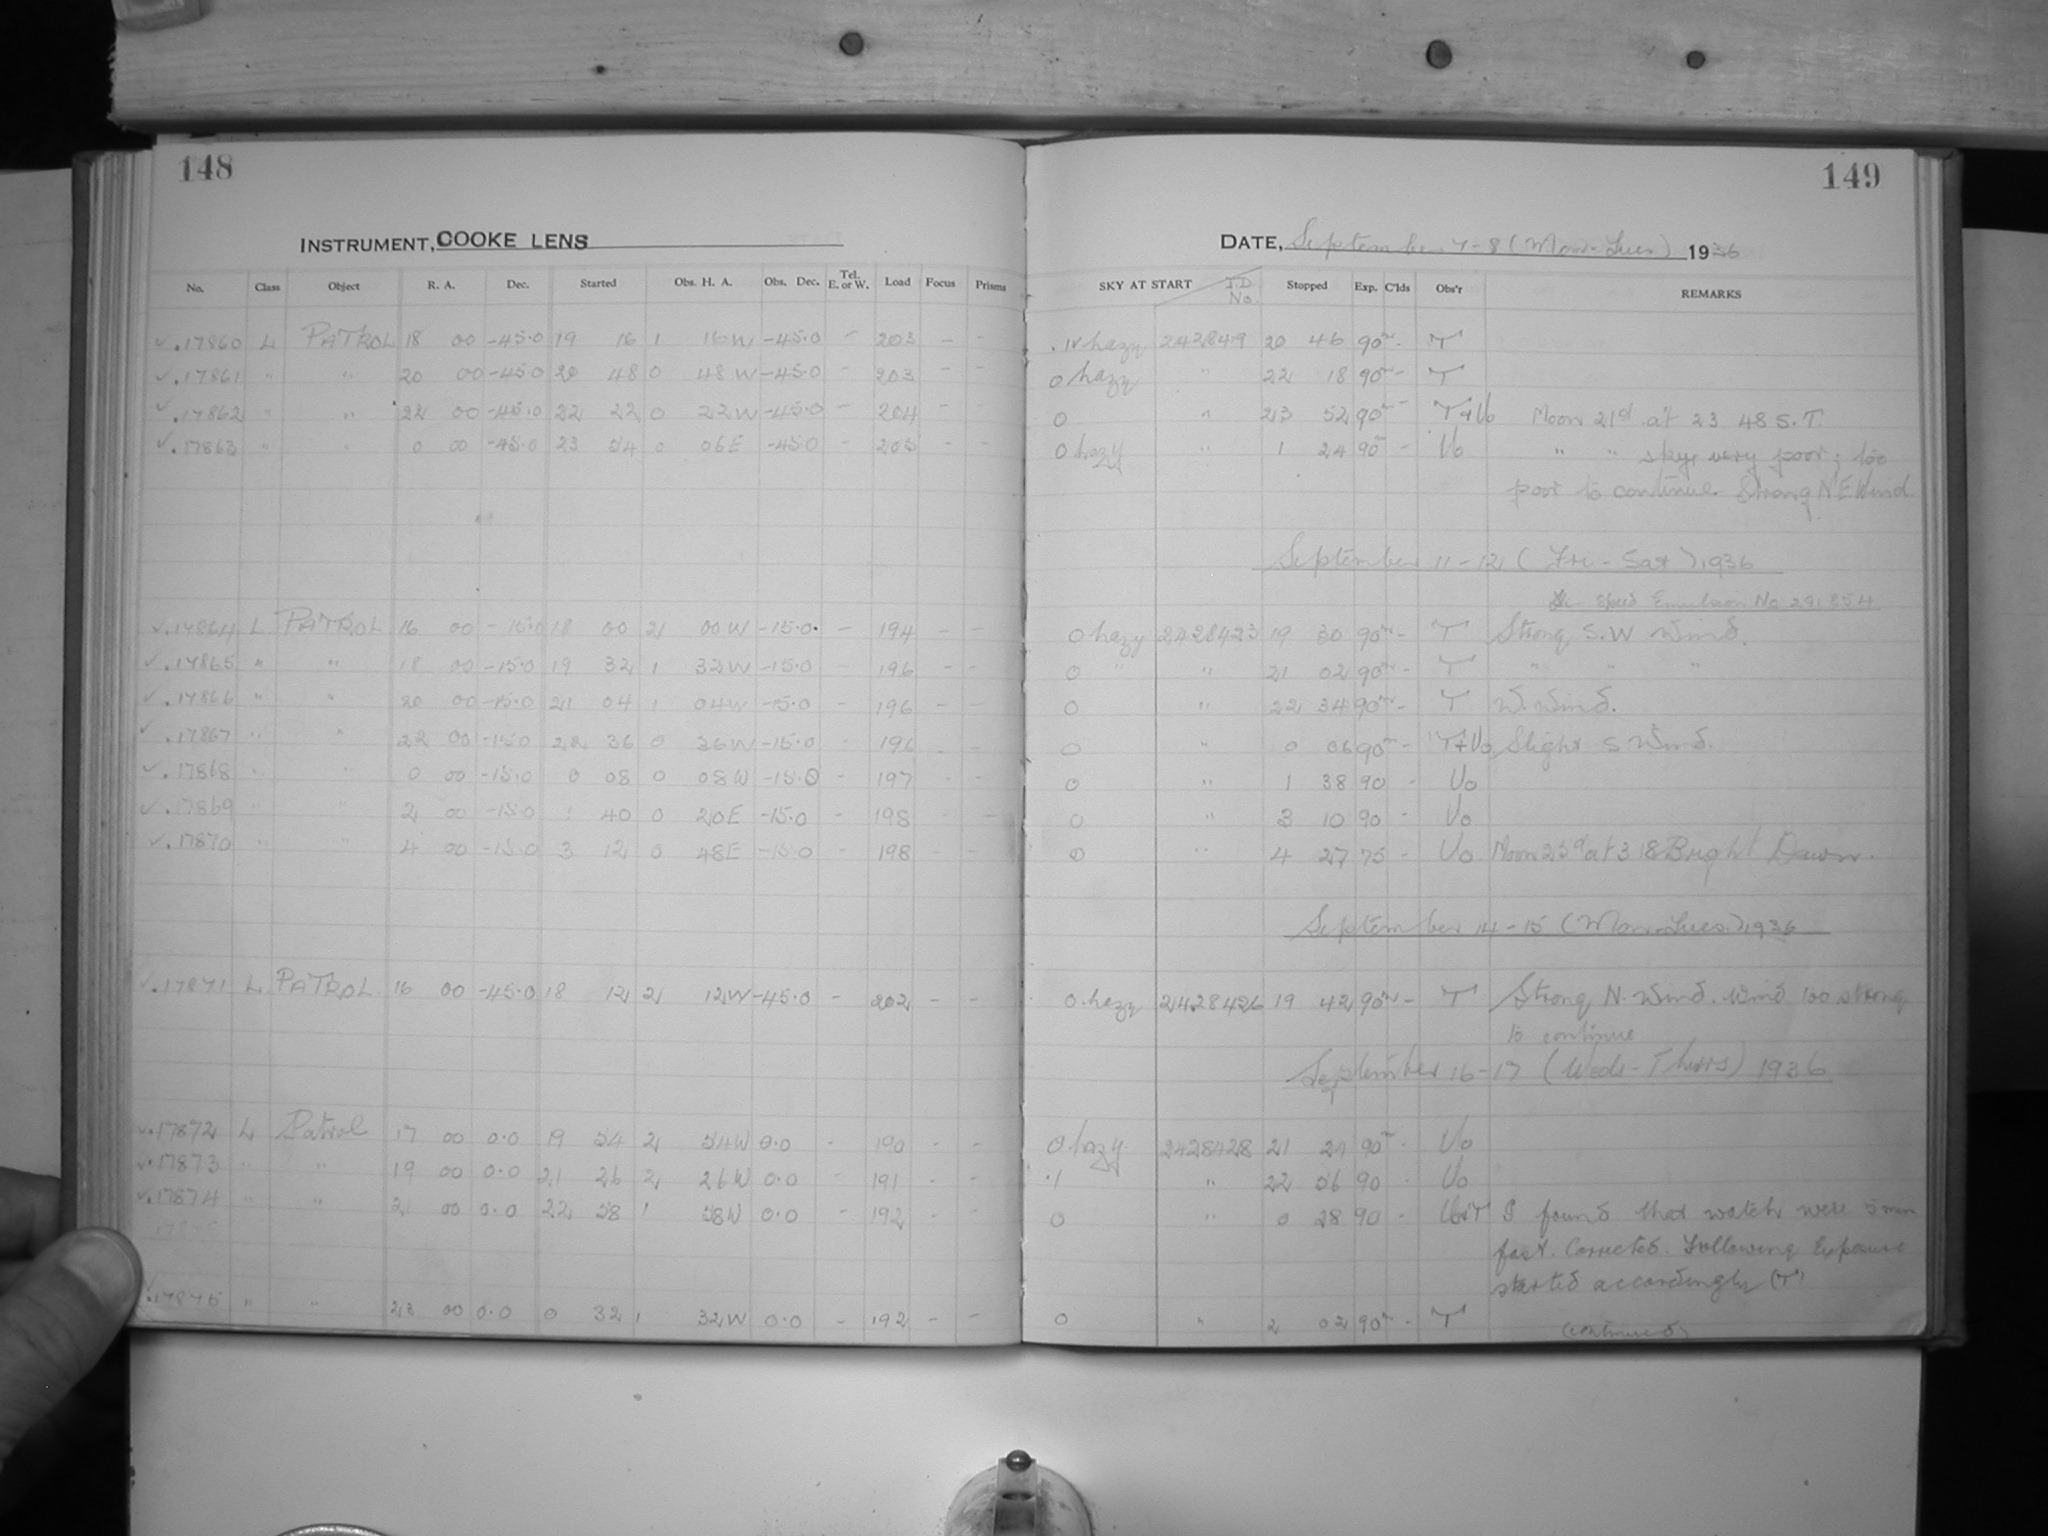 148
149
INSTRUMENT, COOKE LENS
DATE, September 7-8 (Mon-Tues) 1936
No. Class Object R. A. Dec. Started Obs. H. A. Obs. Dec. Tel. E. or W. Load Focus Prisms SKY AT START J.D. No. Stopped Exp. C'lds Obs'r REMARKS
✓.17860 L PATROL 18 00 -45.0 19 16 1 16W -45.0 - 203 - - hazy 242849 20 46 90m - T
✓.17861 " " 20 00 -45.0 20 48 0 48W -45.0 - 203 - - 0 hazy " 22 18 90m - T
✓.17862 " " 22 00 -45.0 22 22 0 22W -45.0 - 204 - - 0 " 23 52 90m - T+Uo Moon 21d at 23 48 S.T.
✓.17863 " " 0 00 -45.0 23 54 0 06E -45.0 - 205 - - 0 hazy " 1 24 90m - Uo " " sky very poor; too
poor to continue. Strong N E Wind.
September 11-12 (Fri-Sat) 1936
speed Emulsion No 291854
✓.17864 L PATROL 16 00 -15.0 18 00 2 00W -15.0 - 194 - - 0 hazy 2428423 19 30 90m - T Strong S.W Wind.
✓.17865 " " 18 00 -15.0 19 32 1 32W -15.0 - 196 - - 0 " " 21 02 90m - T " " "
✓.17866 " " 20 00 -15.0 21 04 1 04W -15.0 - 196 - - 0 " 22 34 90m - T W. Wind.
✓.17867 " " 22 00 -15.0 22 36 0 36W -15.0 - 196 - - 0 " 0 06 90m - T+Uo Slight S Wind.
✓.17868 " " 0 00 -15.0 0 08 0 08W -15.0 - 197 - - 0 " 1 38 90 - Uo
✓.17869 " " 2 00 -15.0 1 40 0 20E -15.0 - 198 - - 0 " 3 10 90 - Uo
✓.17870 " " 4 00 -15.0 3 12 0 48E -15.0 - 198 - - 0 " 4 27 75 - Uo Moon 25d at 3 18 Bright Dawn.
September 14-15 (Mon-Tues) 1936
✓.17871 L PATROL 16 00 -45.0 18 12 2 12W -45.0 - 202 - - 0 hazy 2428426 19 42 90m - T Strong N. Wind. Wind too strong
to continue
September 16-17 (Wed-Thurs) 1936
✓.17872 L Patrol 17 00 0.0 19 54 2 54W 0.0 - 190 - - 0 hazy 2428428 21 24 90m - Uo
✓.17873 " " 19 00 0.0 21 26 2 26W 0.0 - 191 - - .1 " 22 56 90 - Uo
✓.17874 " " 21 00 0.0 22 58 1 58W 0.0 - 192 - - 0 " 0 28 90 - Uo+T I found that watch were 5 min
fast. Corrected. Following Exposure
started accordingly (T)
✓.17875 " " 23 00 0.0 0 32 1 32W 0.0 - 192 - - 0 " 2 02 90m - T
(continued)